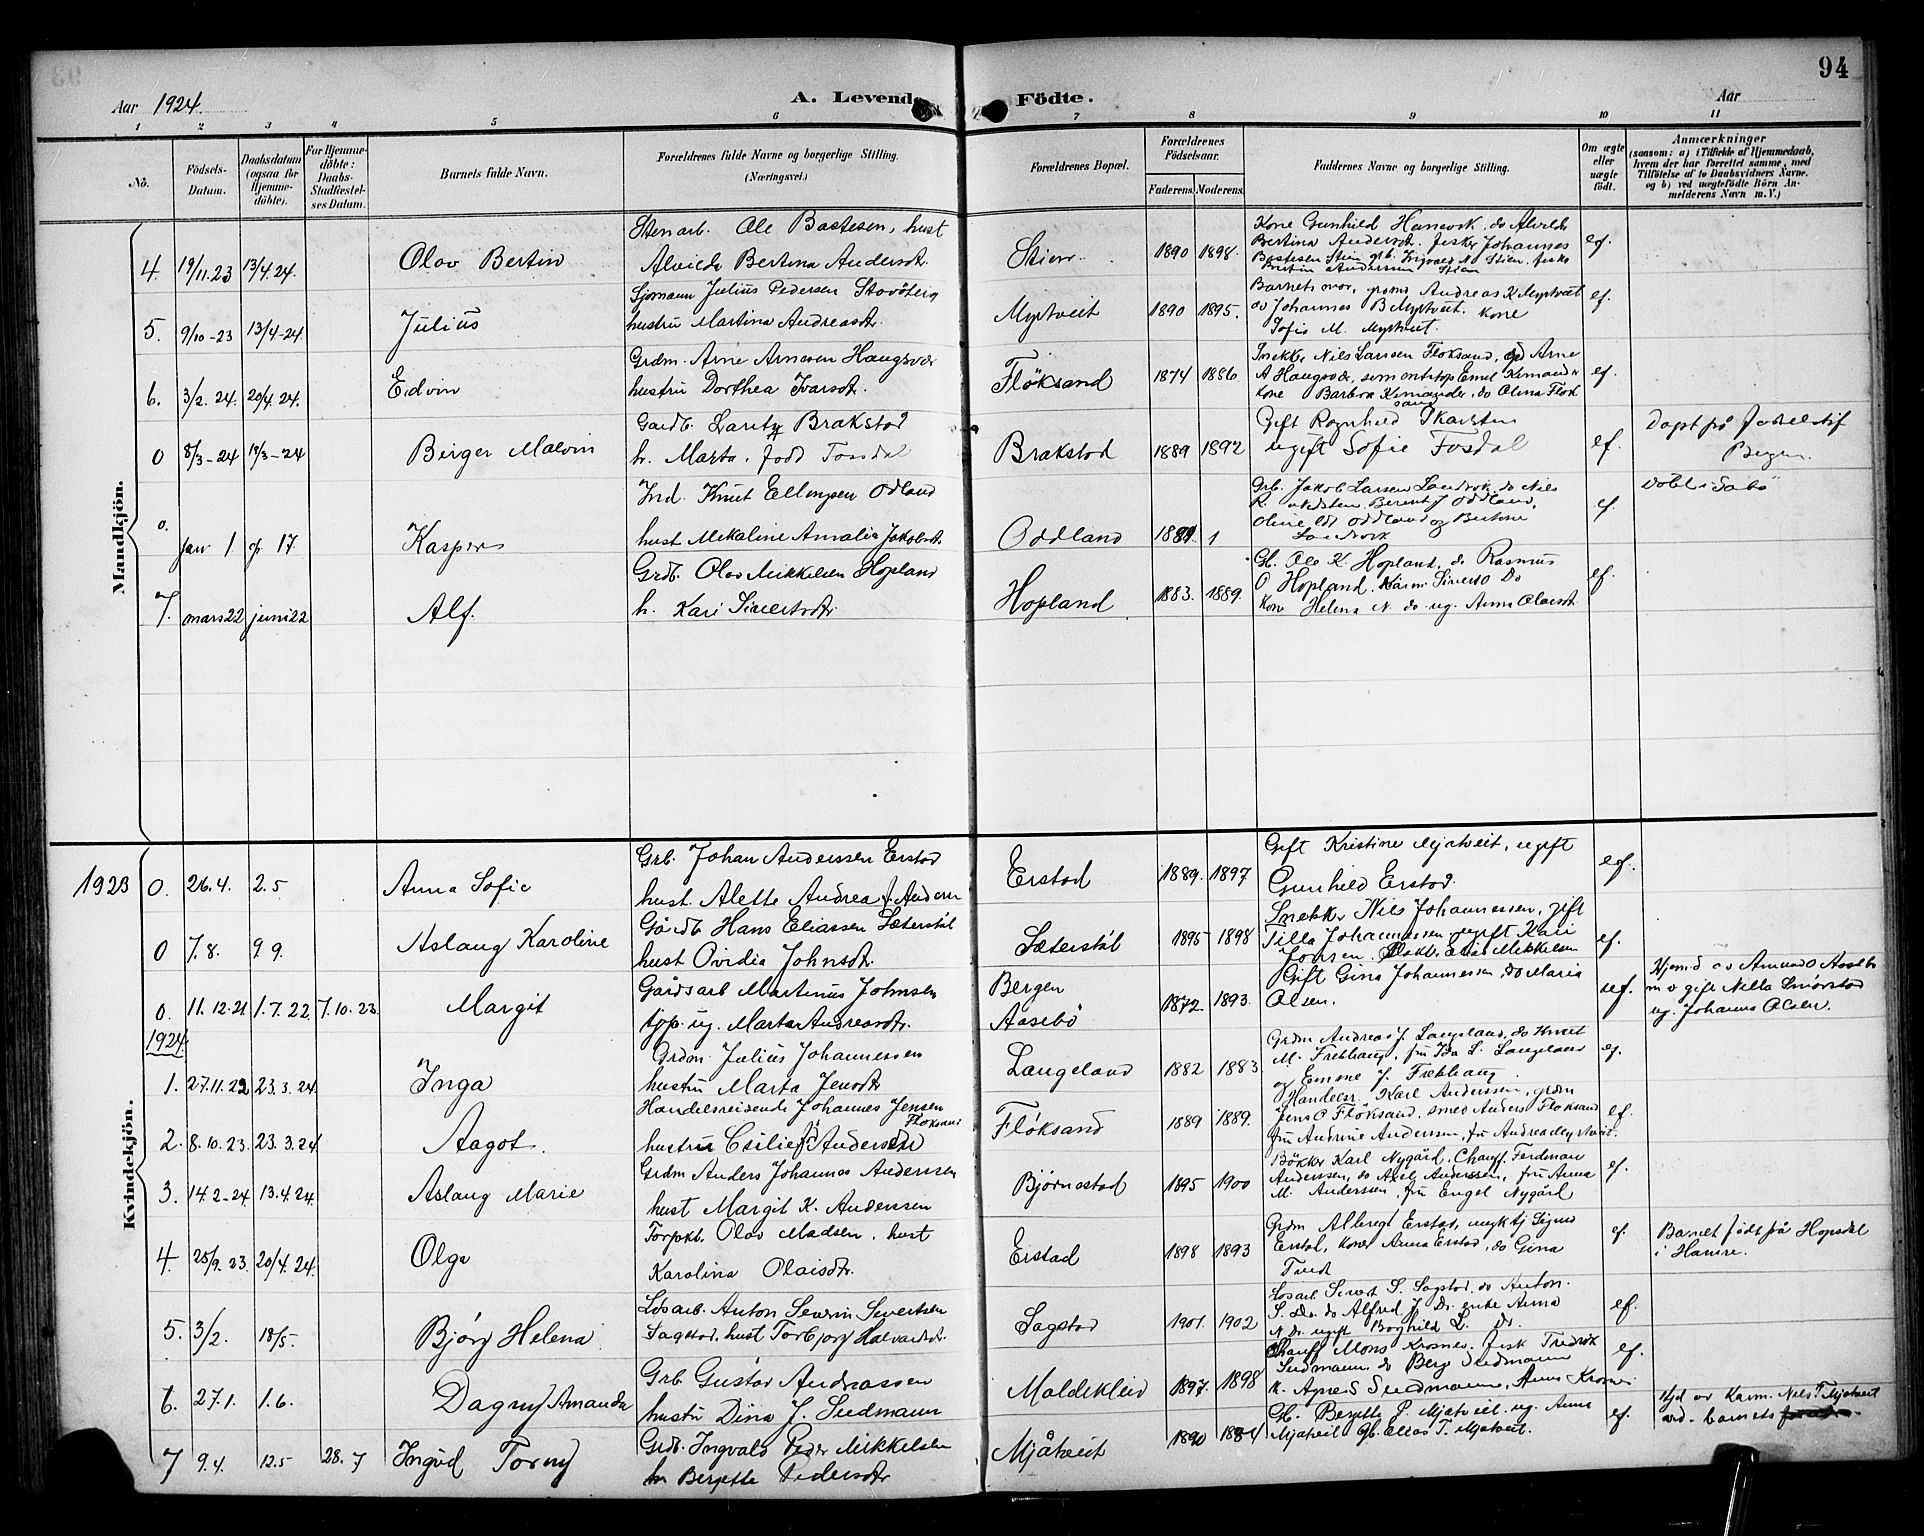 94
Aar 1924.
A. Levende Födte.
Aar
1 2 3 4 5 6 7 8 9 10 11
No.
Födsels-Datum.
Daabsdatum (ogsaa for Hjemme-döbte).
For Hjemme-döbte: Daabs-Stadfæstel-ses Datum.
Barnets fulde Navn.
Forældrenes fulde Navne og borgerlige Stilling. (Næringsvei.)
Forældrenes Bopæl.
Forældrenes Födselsaar.
Faderens. Moderens.
Faddernes Navne og borgerlige Stilling.
Om ægte eller uægte födt.
Anmærkninger
(saasom: a) i Tilfælde af Hjemmedaab, hvem der har forrettet samme, med Tilföielse af to Daabsvidners Navne. og b) ved uægtefödte Börn An-melderens Navn m.V.)
Mandkjön.
4. 19/11.23 13/4.24. Olav Bertin
Stenarb. Ole Bastesen, hust
Alvilde Bertina Andersdt.
1890 1898.
Kone Gunhild do Alvilde
Bertina Andersdt. fisker Johannes
Bastesen
ef.
5. 9/10-23 13/4-24. Julius
Sjømann Julius Pedersen
hustru Martina Andreasdt.
Myktveit 1890 1895.
Barnets mor, Andreas K Myktveit
do Johannes B Myktveit. Kone
Sofie M. Myktveit.
ef.
6. 3/2.24. 20/4.24. Edvin
Grdm. Arne Arnesen Haugsvær
hustru Dorthea Ivarsdt.
Fløksand 1874 1886
Snekker Nils Larsen Floksand, Arne
A Haugsvær,
Kone Barbra do Olina Floksand
ef.
0 8/3-24 Birger Malvin
Gardb. Brakstad
h. Marta. født Fosdal
Brakstad 1889 1892
Gift Ragnhild
ugift Sofie Fosdal
ef.
Døpt på
Bergen.
0. jan 1 17. Kasper
Ind. Knut Ellingsen Odland
hust Mekaline Amalia Jakobsdt.
Oddland
Grb. Jakob Larsen Landsvik do Nils
ef.
døbt i Sæbö
7. mars 22 juni 22 Alf.
Grdb. Olav Mikkelsen Hopland
h. Kari Sivertsdtr
Hopland 1883. 1889.
Gb. Ole K. Hopland, do Rasmus
O Hopland, Sivert do
Kone Helena N. do ug. Anna Olaisdt.
ef.
Kvindekjön.
1923 0. 26.4. 2.5 Anna Sofie
Grb. Johan Anderssen Erstad
hust. Alette Andrea f. Andersen
Erstad 1889. 1897
Gift Kristine Mjatveit, ugift
Gunhild Erstad.
ef.
0 7.8. 9 9. Aslaug Karoline
Gårdb Hans Eliassen Sæterstöl
hust Ovidia Johnsdt.
Sæterstöl 1895 1898
Snekker Nils Johannessen, gift
Tilla Johannessen ugift Kari
Jonsen. Elias Mikkelsen
ef.
0. 11.12.21 1.7.22 7.10.23. Margit
Gårdsarb Martinus Johnsen
tjp. ug. Marta Andreasdt.
Bergen
Aasebö
1872 1893.
Gift Gina Johannessen, do Maria
Olsen.
uef.
Hjemd. av Amund O Aasebö
m v gift Nilla
ug. Johanna Olsen.
1924
1. 27.11.22 23.3.24. Inga
Grdm. Julius Johannessen
hustru Marta Jensdtr
Langeland 1882 1883
Grdm Andreas J. Langeland, do Knut
M. fru Ida L. Langeland
og Emma J.
ef.
2. 8.10.23. 23.3.24 Aagot.
Handelsreisende Johannes Jensen Floksand
hustru Cecilie f. Anderssen
Fløksand 1889 1889.
Handelsr. Karl Anderssen, grdm
Jens O Fløksand, smed Anders Floksand
fru Andrine Anderssen, fru Andrea Myktveit.
ef.
3. 14.2-24. 13.4.24. Aslaug Marie
Grdm Anders Johannes Anderssen
hust Margit K. Anderssen
Bjørnestad 1895 1900
Bøkker Karl Nygård. Chauff. Ferdinan
Anderssen, do Axel Anderssen, fru Anna
M. Anderssen, fru Engel Nygård
ef.
4. 25/9.23. 20/4.24. Olga
Torpkb. Olav Madsen, hust
Karolina Olaisdt.
Erstad 1898 1893
Grdm Albregt Erstad,
Erstad, Koner Anna Erstad, do Gina
ef.
Barnet født på Hopsdal
i Hamre.
5. 3/2. 18/5. Bjørg Helena
Løsarb. Anton Severin Severtsen
Sagstad, hust Torbjørg Halvardsdt.
Sagstad 1901. 1902
Løsarb Sivert S. Sagstad, do Anton
S. Do. do Alfred J Do. enke Anna
N Do. ugift Borghild L. Do.
ef.
6. 27.1. 1.6. Dagny Amanda
Grb. Gustav Andreassen
hustru Dina J. Sudmann
Moldekleiv 1897. 1898
Chauff Mons Krosnes. fisk Fredrik
Sudmann, do Berge Sudmann
k. Agnes Sudmann, Anna Krosnes
ef.
7 9.4. 12.5 28.7 Ingrid Torny
Grdb. Ingvald Peder Mikkelsen
hu Bergette Pedersdtr
Mjåtveit 1890 1884
Gb. Bergette P. Mjatveit. ug. Anna
Mjatveit Gb. Elias T. Mjatveit.
ef.
Hjd av Karm. Nils T Mjatveit
ved barnets